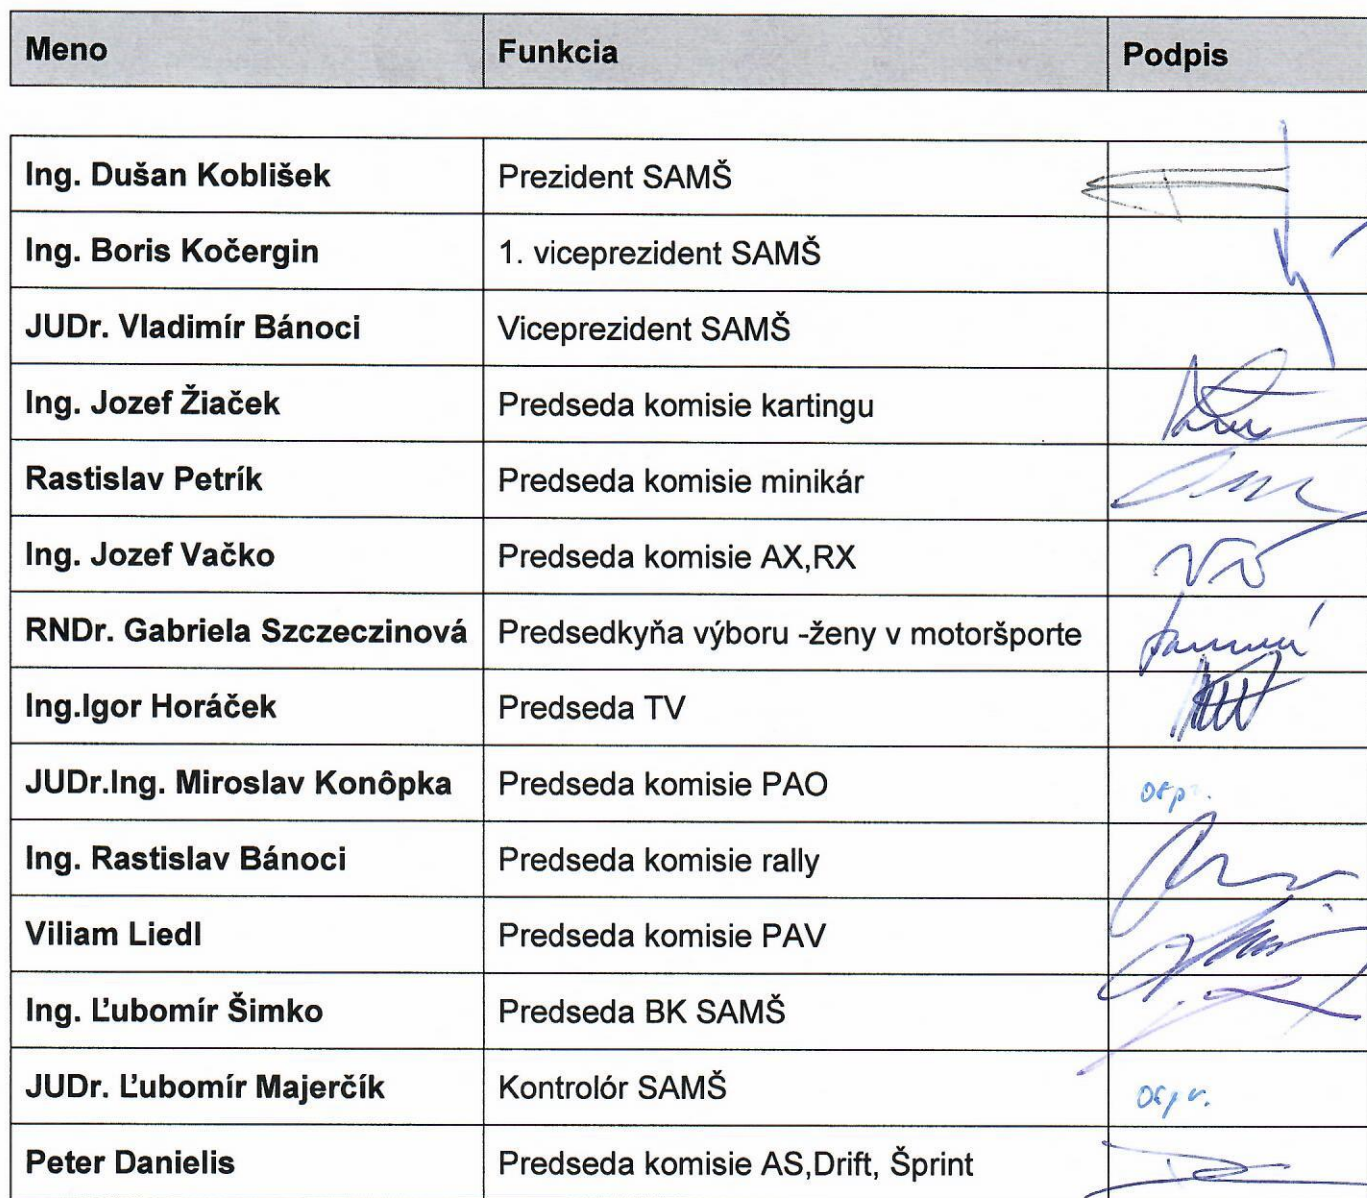 Meno Funkcia Podpis
Ing. Dušan Koblišek Prezident SAMŠ
Ing. Boris Kočergin 1. viceprezident SAMŠ
JUDr. Vladimír Bánoci Viceprezident SAMŠ
Ing. Jozef Žiaček Predseda komisie kartingu
Rastislav Petrík Predseda komisie minikár
Ing. Jozef Vačko Predseda komisie AX,RX
RNDr. Gabriela Szczeczinová Predsedkyňa výboru -ženy v motoršporte
Ing.Igor Horáček Predseda TV
JUDr.Ing. Miroslav Konôpka Predseda komisie PAO
Ing. Rastislav Bánoci Predseda komisie rally
Viliam Liedl Predseda komisie PAV
Ing. Ľubomír Šimko Predseda BK SAMŠ
JUDr. Ľubomír Majerčík Kontrolór SAMŠ
Peter Danielis Predseda komisie AS,Drift, Šprint